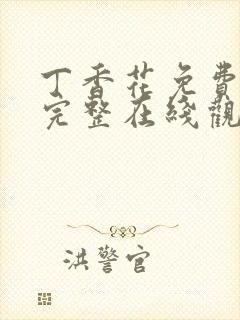 丁香花免費
完整在綫觀
洪警官